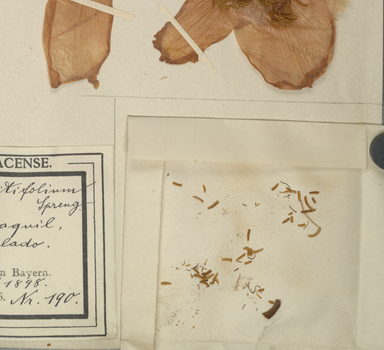 ACENSE.
itifolium
Spreng
aquil,
lado.
n Bayern.
1898.
Nr. 190.